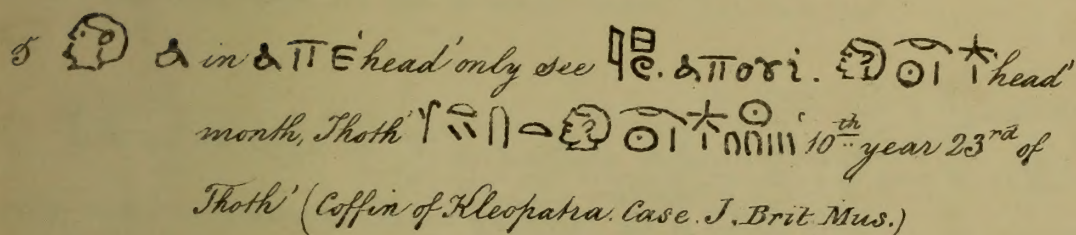 5 𓁶 ⲁ in ⲁⲡⲉ 'head' only see . ⲁⲡⲟⲩⲓ . 𓁶 𓇹 𓏤 𓇼 'head'
month, Thoth' 𓎆 𓂋 𓁶 𓇹 𓏤 𓇼 𓇳 𓎆𓎆 𓏤𓏤𓏤 10th year 23rd of
Thoth' (Coffin of Kleopatra. Case. J. Brit Mus.)